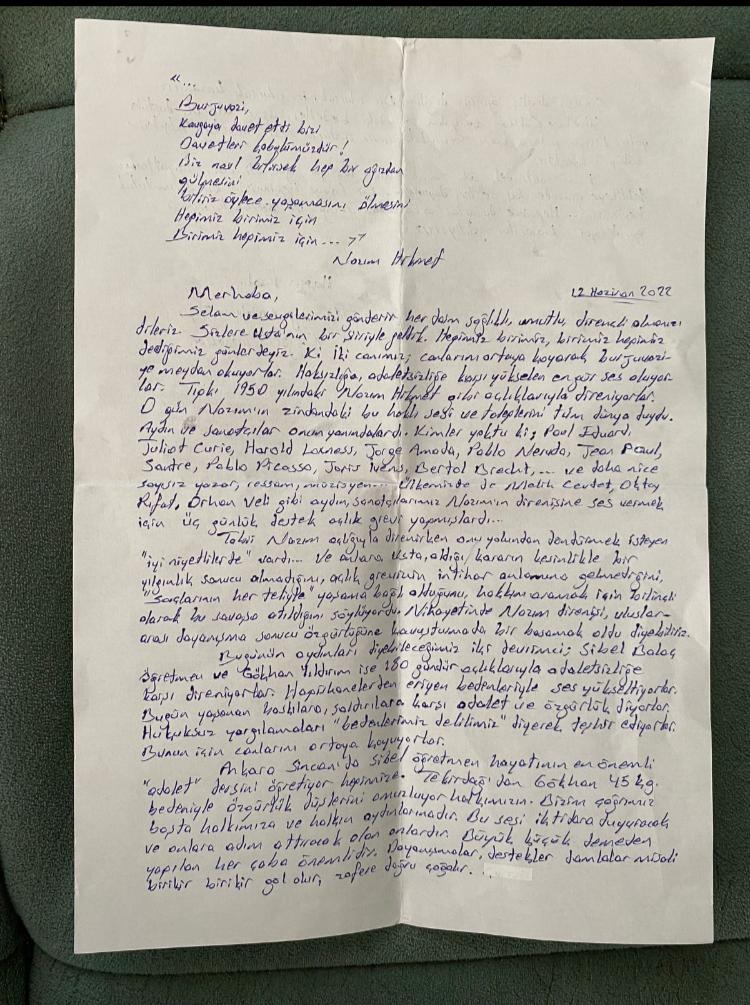 "...
Burjuvazi,
Kavgaya davet etti bizi
Davetleri kabulümüzdür!
Biz nasıl bilirsek hep bir ağızdan
gülmesini
biliriz öylece yaşamasını ölmesini
Hepimiz birimiz için
Birimiz hepimiz için... >>
Nazım Hikmet
12 Haziran 2022
Merhaba,
Selam ve sevgilerimizi gönderir her daim sağlıklı, umutlu, dirençli olmanızı
dileriz. Sizlere Usta'nın bir şiiriyle geldik. Hepimiz birimiz, birimiz hepimiz
dediğimiz günlerdeyiz. Ki iki canımız; canlarını ortaya koyarak, burjuvazi-
ye meydan okuyorlar. Haksızlığa, adaletsizliğe karşı yükselen en gür ses oluyor-
lar. Tıpkı 1950 yılındaki Nazım Hikmet gibi açlıklarıyla direniyorlar.
O gün Nazım'ın zindandaki bu haklı sesi ve taleplerini tüm dünya duydu.
Aydın ve sanatçılar onun yanındalardı. Kimler yoktu ki; Paul Eluard,
Juliot Curie, Harold Laxness, Jorge Amado, Pablo Neruda, Jean Paul,
Sartre, Pablo Picasso, Joris Ivens, Bertol Brecht,... ve daha nice
sayısız yazar, ressam, müzisyen... Ülkemizde de Melih Cevdet, Oktay
Rıfat, Orhan Veli gibi aydın, sanatçılarımız Nazım'ın direnişine ses vermek
için üç günlük destek açlık grevi yapmışlardı...
Tabi Nazım açlığıyla direnirken onu yolundan döndürmek isteyen
"iyi niyetliler de" vardı... Ve onlara Usta, aldığı kararın kesinlikle bir
yılgınlık sonucu olmadığını, açlık grevinin intihar anlamına gelmediğini,
"saçlarının her teliyle" yaşama bağlı olduğunu, hakkını aramak için bilinçli
olarak bu savaşa atıldığını söylüyordu. Nihayetinde Nazım direnişi, uluslar-
arası dayanışma sonucu özgürlüğüne kavuştumada bir basamak oldu diyebiliriz.
Bugünün aydınları diyebileceğimiz iki devrimci; Sibel Balaç
öğretmen ve Gökhan Yıldırım ise 180 gündür açlıklarıyla adaletsizliğe
karşı direniyorlar. Hapishanelerden eriyen bedenleriyle ses yükseltiyorlar.
Bugün yaşanan baskılara, saldırılara karşı adalet ve özgürlük diyorlar.
Hukuksuz yargılamaları "bedenlerimiz delilimiz" diyerek teşhir ediyorlar.
Bunun için canlarını ortaya koyuyorlar.
Ankara Sincan'da Sibel öğretmen hayatının en önemli
"adalet" dersini öğretiyor hepimize. Tekirdağ'dan Gökhan 45 kg.
bedeniyle özgürlük düşlerini omuzluyor halkımızın. Bizim çağrımız
başta halkımıza ve halkın aydınlarınadır. Bu sesi iktidara duyuracak
ve onlara adım attıracak olan onlardır. Büyük küçük demeden
yapılan her çaba önemlidir. Dayanışmalar, destekler damlalar misali
birikir birikir göl olur, zafere doğru çoğalır.